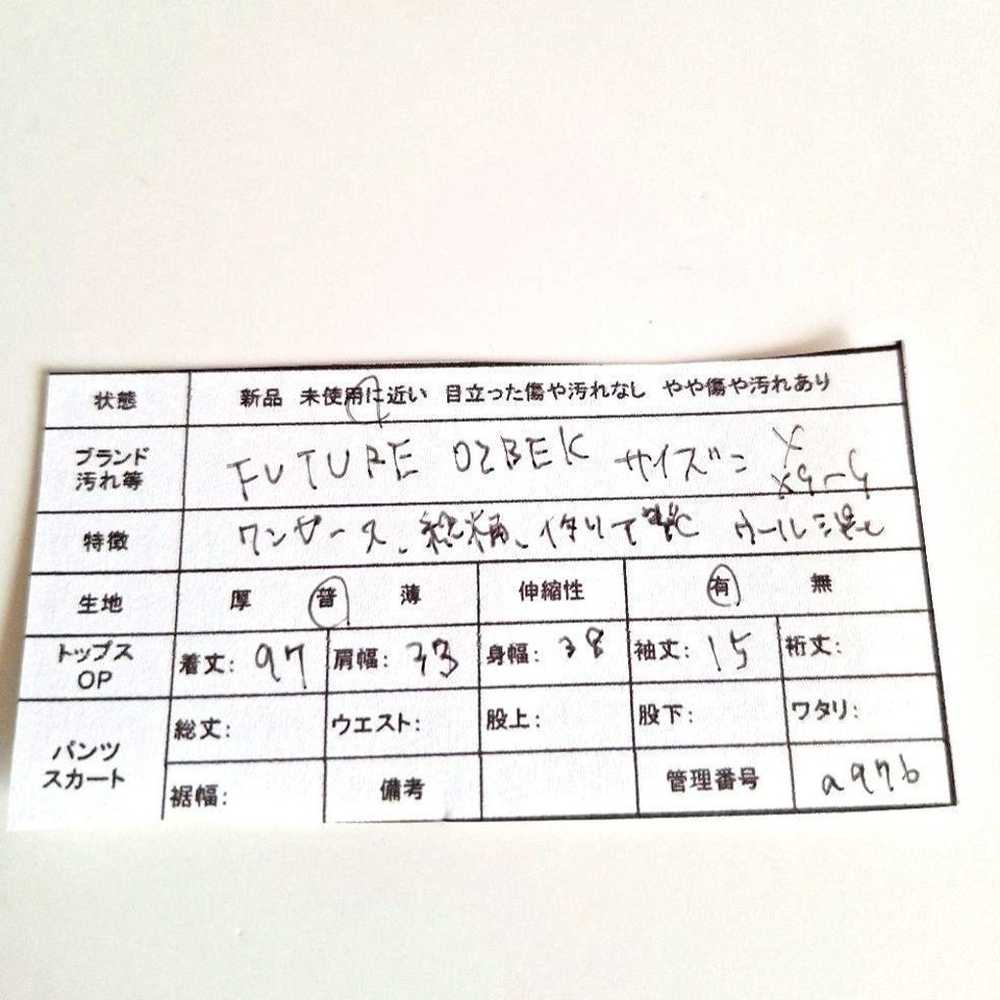 状態 新品 未使用に近い 目立った傷や汚れなし やや傷や汚れあり
ブランド 汚れ等 FUTURE OZBEK サイズ=
特徴 ワンピース、総柄、イタリア製 ウール混
生地 厚 普 薄 伸縮性 有 無
トップス OP 着丈: 97 肩幅: 33 身幅: 38 袖丈: 15 裄丈:
パンツ スカート 総丈: ウエスト: 股上: 股下: ワタリ:
裾幅: 備考 管理番号 a976